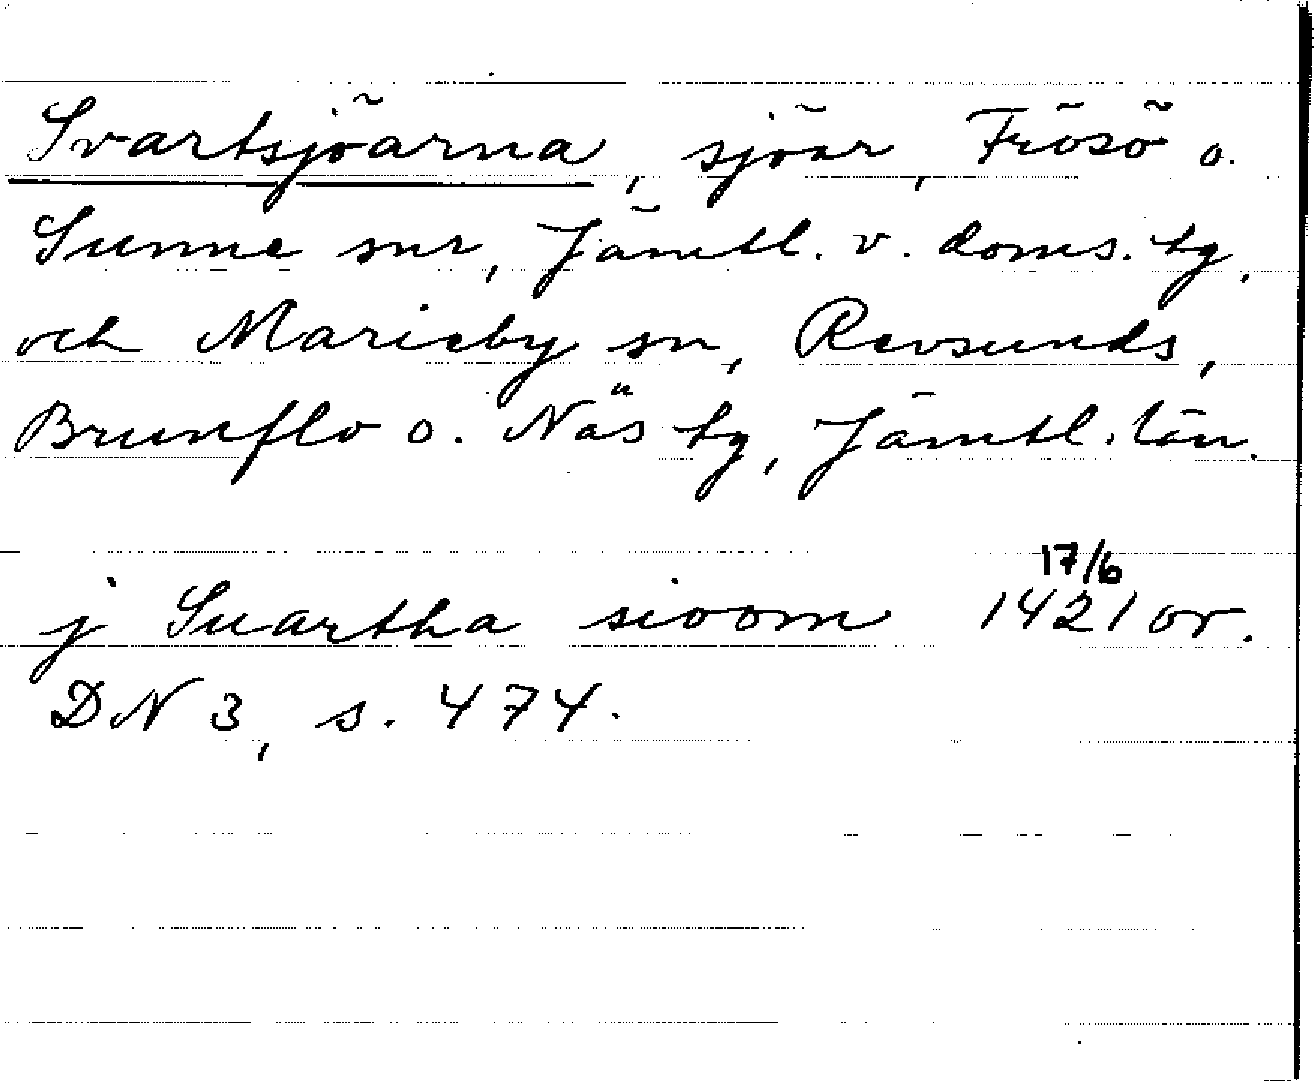 Svartsjöarna, sjöar, Frösö o.
Sunne snr, Jämtl. v. doms. tg,
och Marieby sn, Revsunds,
Brunflo o. Näs tg, Jämtl. län.
17/6
j Suartha sioom 1421 or.
DN 3, s. 474.